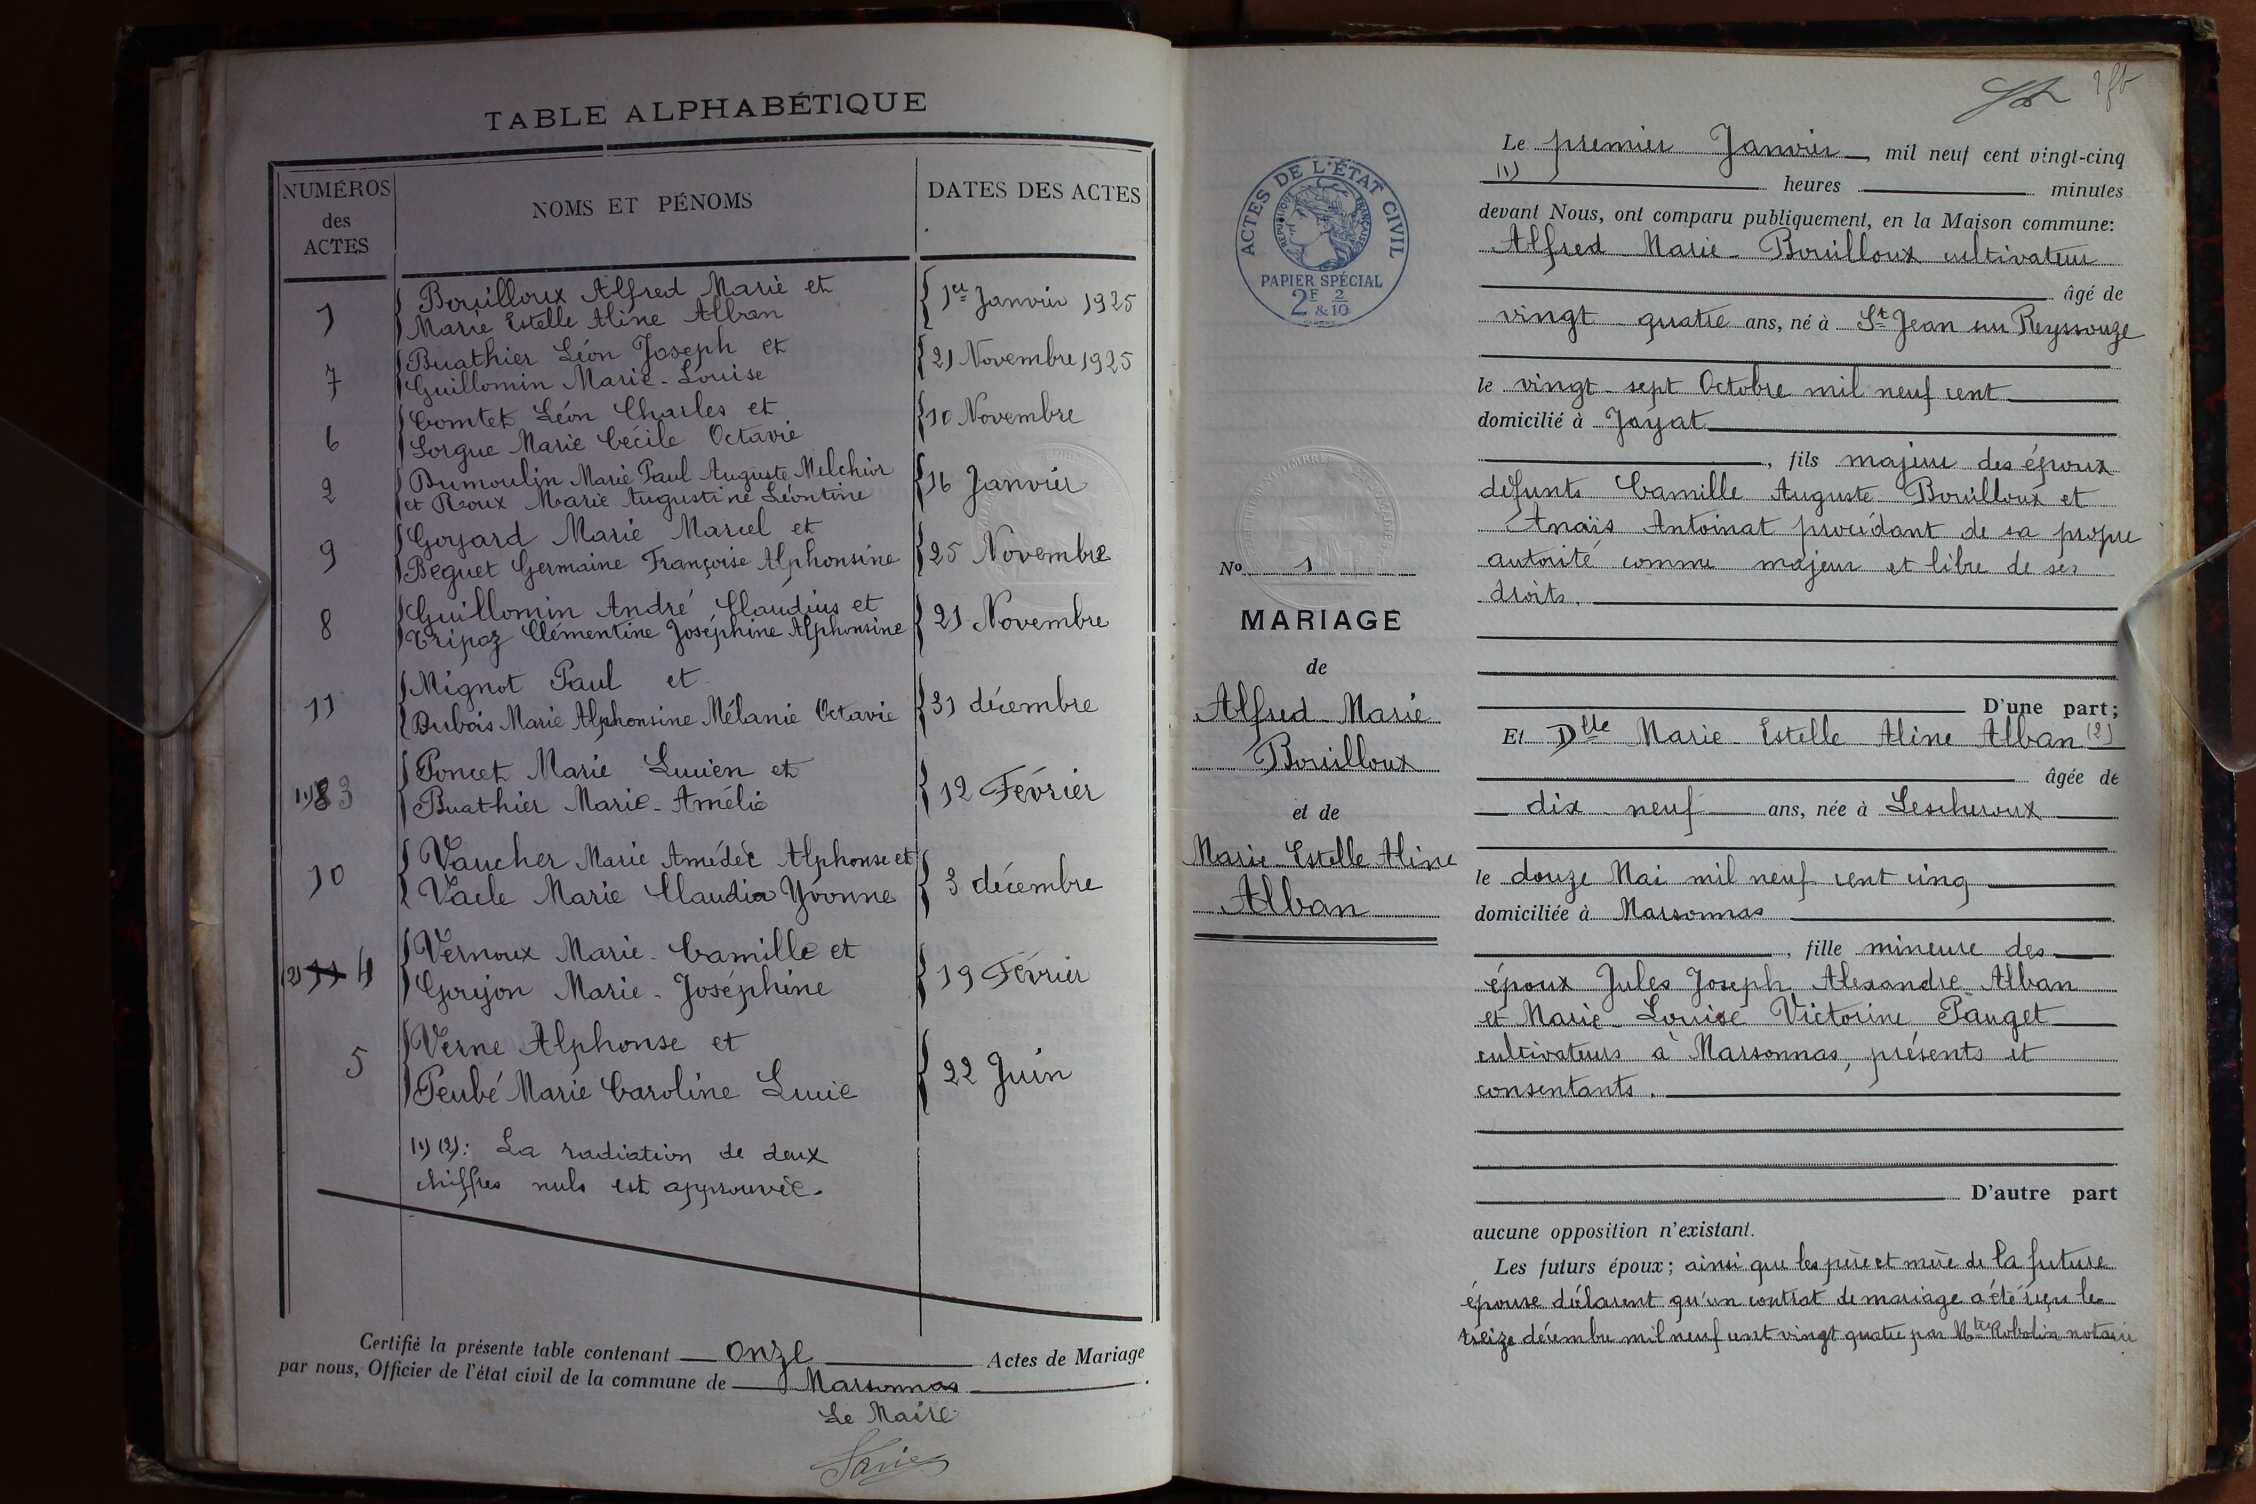 TABLE ALPHABÉTIQUE
NUMÉROS
des
ACTES
NOMS ET PÉNOMS
DATES DES ACTES
1
Bouilloux Alfred Marie et
Marie Estelle Aline Alban
1er Janvier 1925
7
Buathier Léon Joseph et
Guillomin Marie-Louise
21 Novembre 1925
6
Comtet Léon Charles et
Sorgue Marie Cécile Octavie
10 Novembre
2
Dumoulin Marie Paul Auguste Melchior
et Roux Marie Augustine Léontine
16 Janvier
9
Goyard Marie Marcel et
Beguet Germaine Françoise Alphonsine
25 Novembre
8
Guillomin André Claudius et
Tripoz Clémentine Joséphine Alphonsine
21 Novembre
11
Mignot Paul et
Dubois Marie Alphonsine Mélanie Octavie
31 décembre
(1) 8 3
Poncet Marie Lucien et
Buathier Marie-Amélie
12 Février
10
Vaucher Marie Amédée Alphonse et
Vacle Marie Claudia Yvonne
3 décembre
(2) 11 4
Vernoux Marie-Camille et
Gorijon Marie-Joséphine
19 Février
5
Verne Alphonse et
Peubé Marie Caroline Lucie
22 Juin
(1) (2): La radiation de deux
chiffres nuls est approuvée.
Certifié la présente table contenant onze Actes de Mariage
par nous, Officier de l'état civil de la commune de Marsonnas.
Le Maire
ACTES DE L'ÉTAT CIVIL
RÉPUBLIQUE FRANÇAISE
PAPIER SPÉCIAL
2F 2
&10
No 1
MARIAGE
de
Alfred Marie
Bouilloux
et de
Marie Estelle Aline
Alban
Le premier Janvier, mil neuf cent vingt-cinq
(1) heures minutes
devant Nous, ont comparu publiquement, en la Maison commune:
Alfred Marie-Bouilloux cultivateur
âgé de
vingt-quatre ans, né à St Jean sur Reyssouze
le vingt-sept Octobre mil neuf cent
domicilié à Jayat
, fils majeur des époux
défunts Camille Auguste Bouilloux et
Anaïs Antoinat procédant de sa propre
autorité comme majeur et libre de ses
droits.
D'une part;
Et Dlle Marie-Estelle Aline Alban (2)
âgée de
dix-neuf ans, née à Lescheroux
le douze Mai mil neuf cent cinq
domiciliée à Marsonnas
, fille mineure des
époux Jules Joseph Alexandre Alban
et Marie-Louise Victorine Panget
cultivateurs à Marsonnas, présents et
consentants.
D'autre part
aucune opposition n'existant.
Les futurs époux; ainsi que les père et mère de la future
épouse déclarent qu'un contrat de mariage a été reçu le
treize décembre mil neuf cent vingt quatre par Mtre Robolin notaire